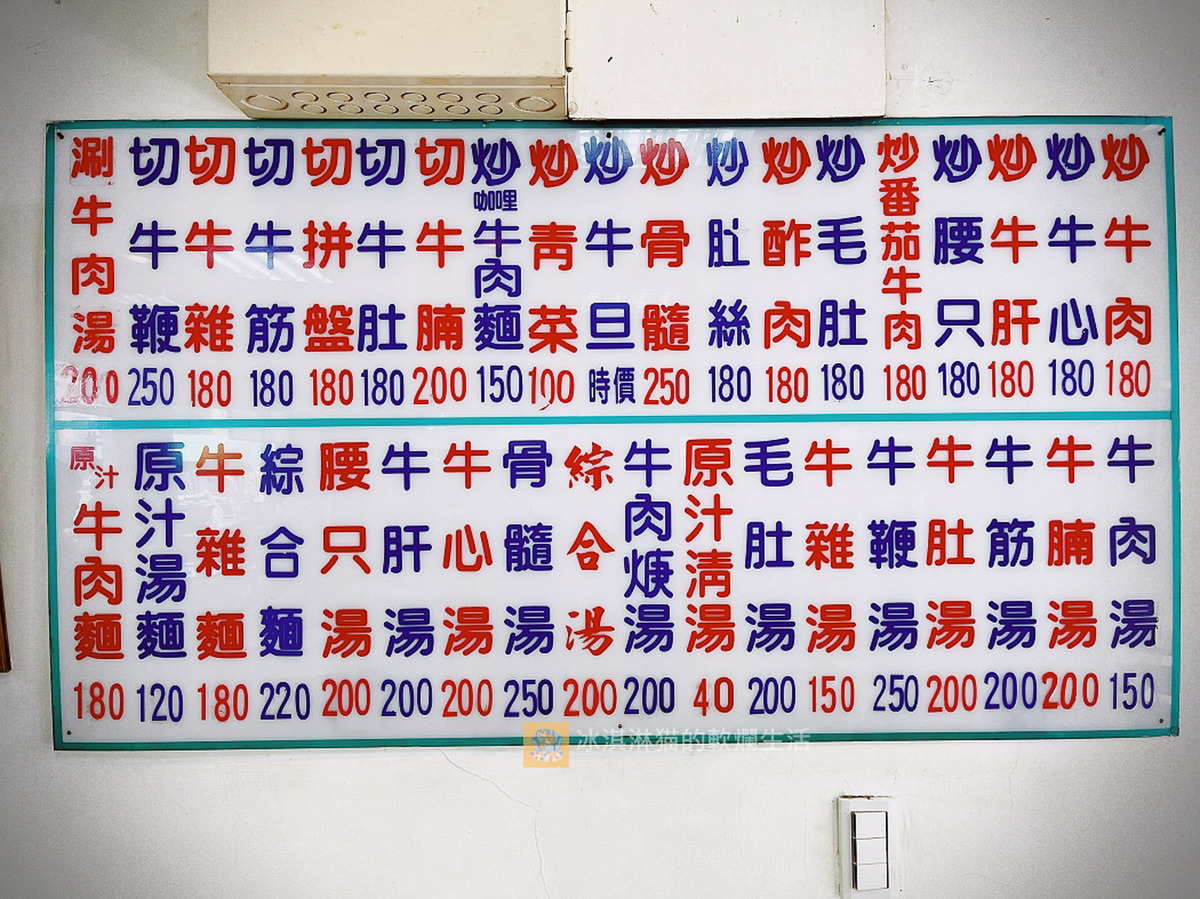 炒牛肉 180
炒牛心 180
炒牛肝 180
炒腰只 180
炒番茄牛肉 180
炒毛肚 180
炒酢肉 180
炒肚絲 180
炒骨髓 250
炒牛旦 時價
炒青菜 100
炒咖哩牛肉麵 150
切牛腩 200
切牛肚 180
切拼盤 180
切牛筋 180
切牛雜 180
切牛鞭 250
涮牛肉湯 200
牛肉湯 150
牛腩湯 200
牛筋湯 200
牛肚湯 200
牛鞭湯 250
牛雜湯 150
毛肚湯 200
原汁清湯 40
牛肉焿湯 200
綜合湯 200
骨髓湯 250
牛心湯 200
牛肝湯 200
腰只湯 200
綜合麵 220
牛雜麵 180
原汁湯麵 120
原汁牛肉麵 180
冰淇淋猫的軟爛生活